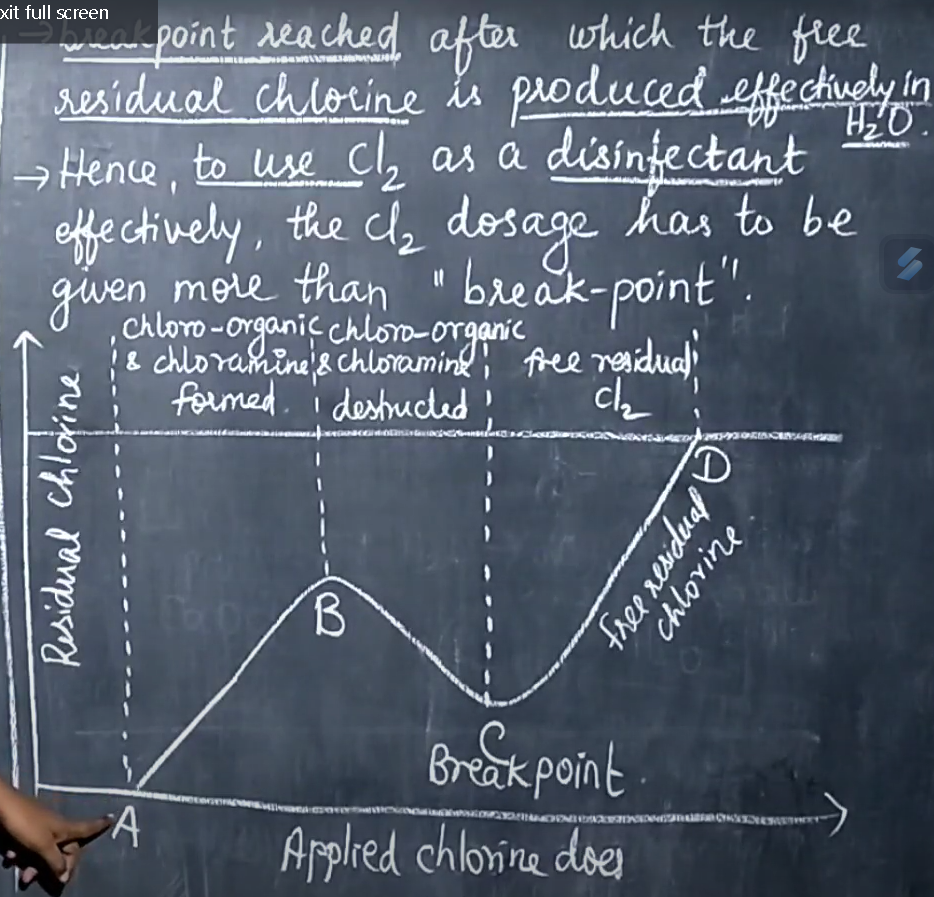 xit full screen
→ breakpoint reached after which the free
residual chlorine is produced effectively in
H₂O.
→ Hence, to use Cl₂ as a disinfectant
effectively, the Cl₂ dosage has to be
given more than "break-point".
chloro-organic & chloramine formed
chloro-organic & chloramine destructed
free residual Cl₂
Residual chlorine
A
B
C
D
Free residual chlorine
Breakpoint.
Applied chlorine does